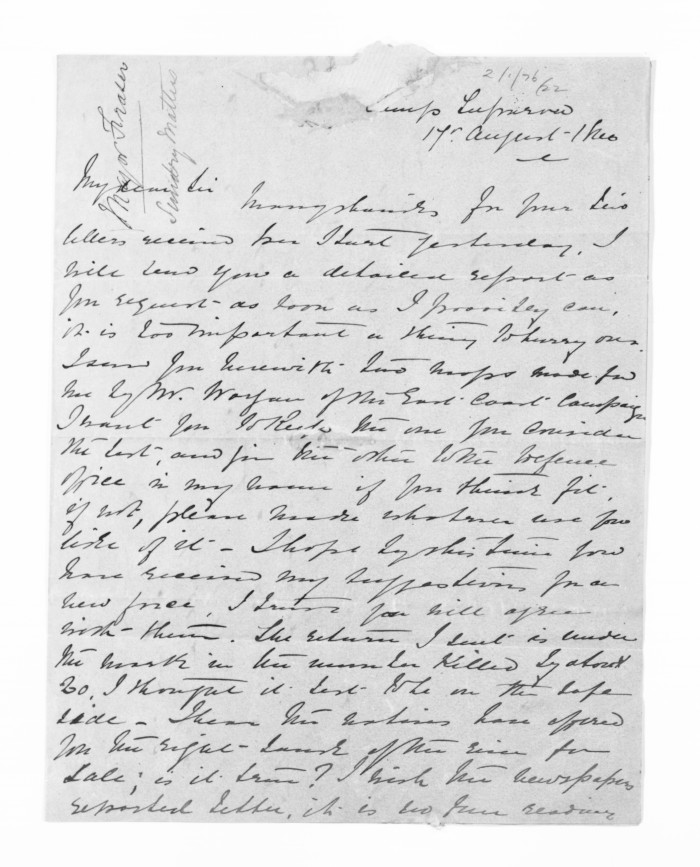 2/1/76/22
Major Fraser
Sundry Matters
Camp
17th August 1860
My dear Sir
Many thanks for your two
letters received here I start yesterday. I
will send you a detailed report as
you request as soon as I possibly can,
it is too important a thing to hurry over.
I send you herewith two maps made for
me by Mr. of the East Coast Campaign
I want you to keep the one you consider
the best, and give the other to the Defence
Office in my name if you think fit,
if not, please make whatever use you
like of it - I hope by this time you
have received my suggestions for a
new force, I trust you will agree
with them. The return I sent is under
the mark in the number killed by about
30, I thought it best to be on the safe
side - I hear the natives have offered
you the right bank of the river for
Sale; is it true? I wish the newspapers
reported better, it is no fun reading